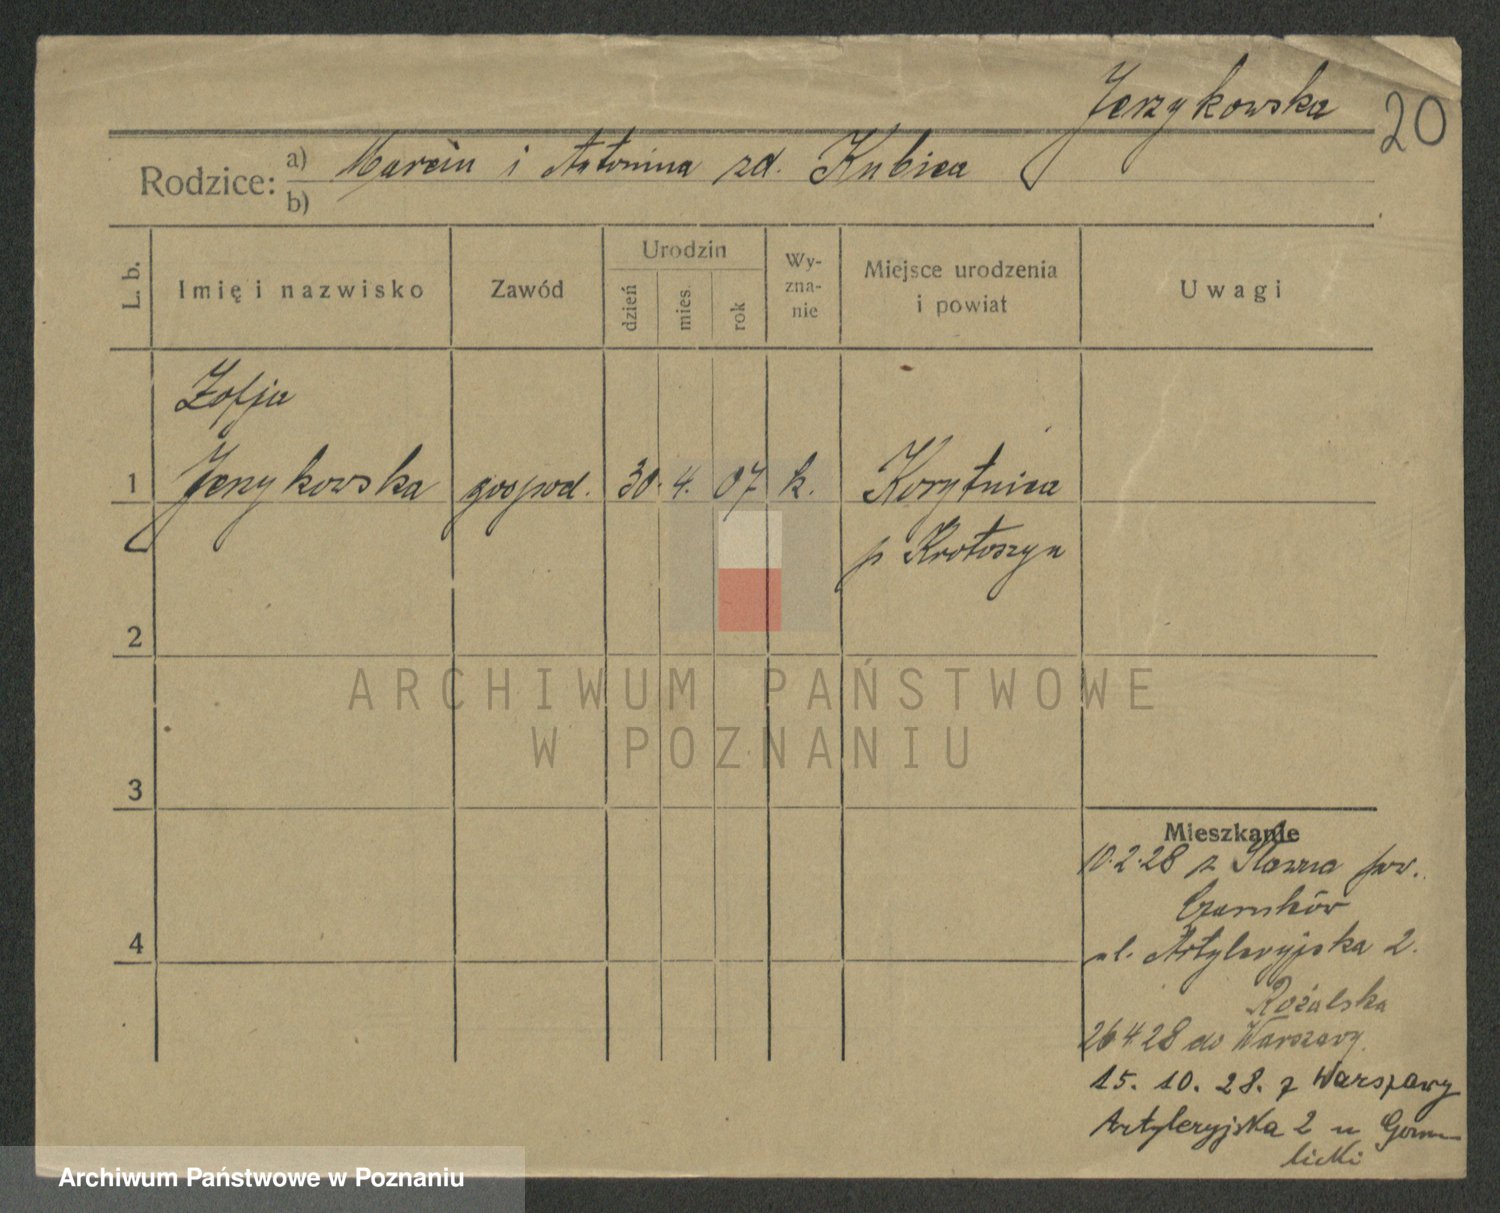 Jerzykowska 20
Rodzice: a) Marcin i Antonina zd. Kubica
b)
L. b.
Imię i nazwisko
Zawód
Urodzin
dzień
mies.
rok
Wy-
zna-
nie
Miejsce urodzenia
i powiat
Uwagi
Zofja
1 Jerzykowska gospod. 30. 4. 07 k. Korytnica
p Krotoszyn
2
ARCHIWUM PAŃSTWOWE
W POZNANIU
3
Mieszkanie
10.2.28 z Sławna pow.
Czarnków
ul. Artyleryjska 2.
26 4 28 do Warszawy.
15. 10. 28. z Warszawy
Artyleryjska 2 u
4
Archiwum Państwowe w Poznaniu